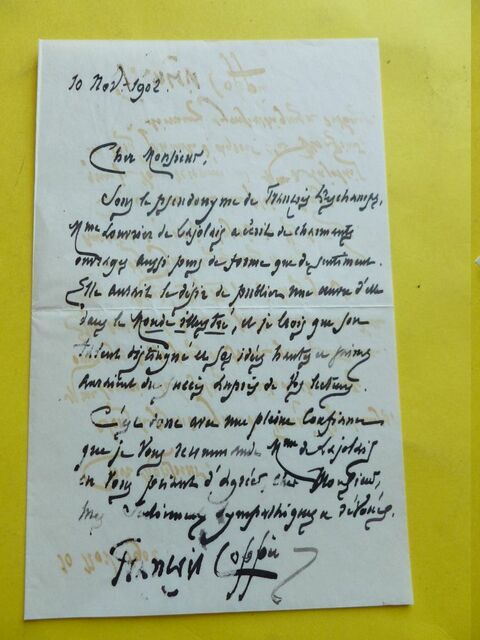 10 Nov. 1902.
Cher Monsieur,
Sous le pseudonyme de François Deschamps,
Mme Louvrier de Lajolais a écrit de charmants
ouvrages aussi purs de forme que de sentiment.
Elle aurait le désir de publier une œuvre d'elle
dans le Monde illustré, et je crois que son
talent distingué et ses idées hautes et
auraient du succès auprès de vos lecteurs.
C'est donc avec une pleine confiance
que je vous recommande Mme de Lajolais
en vous priant d'agréer, cher Monsieur,
mes sentiments sympathiques et dévoués.
François Coppée